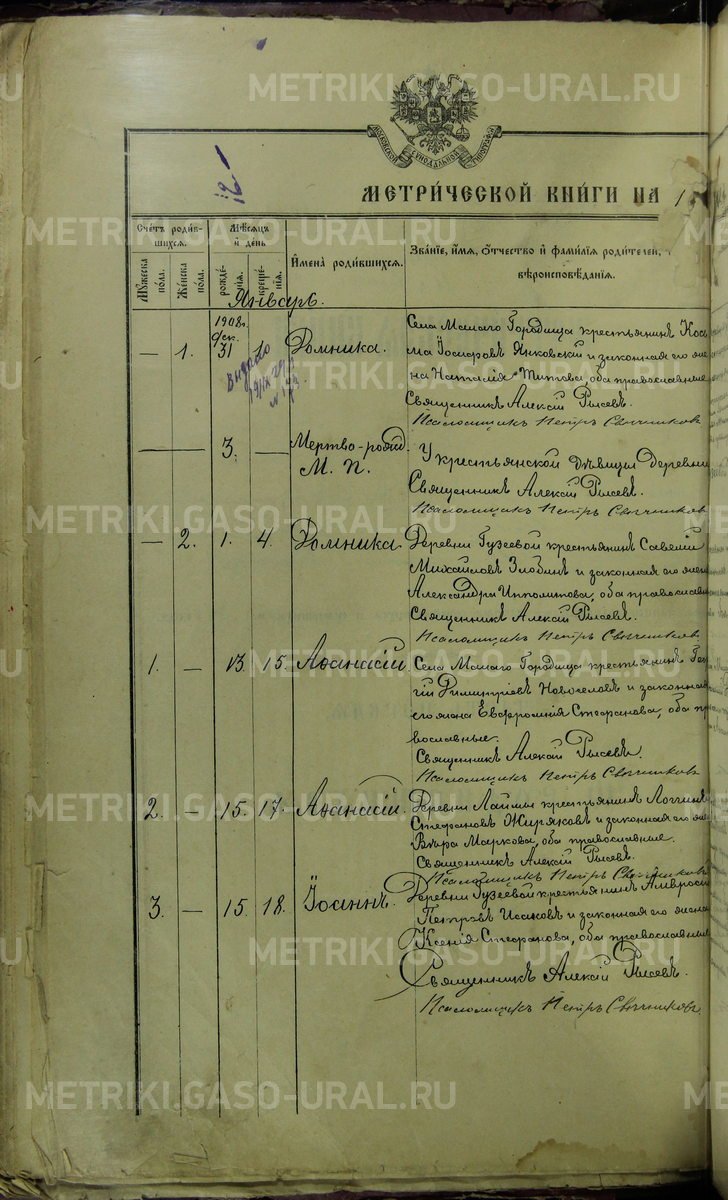 МОСКОВСКОЙ СѴНОДАЛЬНОЙ ТИПОГРАФІИ
12
МЕТРИ́ЧЕСКОЙ КНИ́ГИ НА 1
Сче́тъ роди́в-
шихся.
Мꙋ́жеска
по́ла.
Же́нска
по́ла.
Мѣ́сяцъ
и҆ де́нь
рожде́-
нія.
креще́-
нія.
И҆мена̀ роди́вшихся.
Зва́нїе, и҆́мя, ѻ҆́тчество и҆ фами́лїя роди́телей,
вѣроисповѣ́данїя.
Январь.
1908г.
Дек.
— 1. 31 1. Домника.
Выдано
19
Села Малаго Городища крестьянинъ Кос-
ма Янковскій и законная его же-
на Наталія Титова, оба православные
Священникъ Алексій Рысевъ.
Псаломщикъ Петръ Свѣчниковъ
— — 3. — Мертво-рожд.
М. п.
У крестьянской дѣвицы деревни
Священникъ Алексій Рысевъ.
Псаломщикъ Петръ Свѣчниковъ
— 2. 1. 4. Домника.
Деревни Гузеевой крестьянинъ Савелій
Михайловъ Злобинъ и законная его жена
Александра Ипполитова, оба православн
Священникъ Алексій Рысевъ.
Псаломщикъ Петръ Свѣчниковъ
1. — 13. 15. Аѳанасій.
Села Малаго Городища крестьянинъ Геор
гій Димитріевъ Новоселовъ и законная
его жена Евфросинія Стефанова, оба пра
вославные.
Священникъ Алексій Рысевъ.
Псаломщикъ Петръ Свѣчниковъ
2. — 15. 17. Аѳанасій.
Деревни Лаймы крестьянинъ Логгинъ
Стефановъ Жиряковъ и законная его жен
Вѣра Маркова, оба православные.
Священникъ Алексій Рысевъ.
Псаломщикъ Петръ Свѣчниковъ
3. — 15. 18. Іоаннъ.
Деревни Гузеевой крестьянинъ Амвросій
Петровъ Исаковъ и законная его жена
Ксенія Стефанова, оба православные
Священникъ Алексій Рысевъ.
Псаломщикъ Петръ Свѣчниковъ
METRIKI.GASO-URAL.RU
METRIKI.GASO-URAL.RU
METRIKI.GASO-URAL.RU
METRIKI.GASO-URAL.RU
METRIKI.GASO-URAL.RU
METRIKI.GASO-URAL.RU
METRIKI.GASO-URAL.RU
METRIKI.GASO-URAL.RU